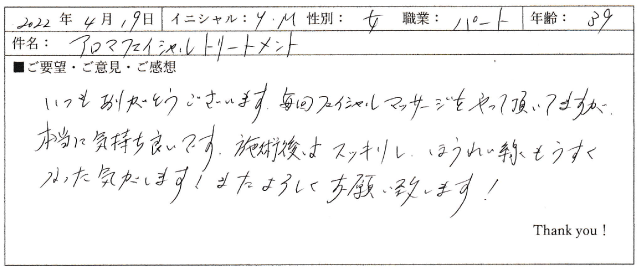 2022年 4月 19日 イニシャル：Y.M 性別：女 職業：パート 年齢：39
件名：アロマフェイシャルトリートメント
■ご要望・ご意見・ご感想
いつもありがとうございます。毎回フェイシャルマッサージをやって頂いてますが、
本当に気持ち良いです。施術後はスッキリし、ほうれい線もうすく
なった気がします！またよろしくお願い致します！
Thank you！